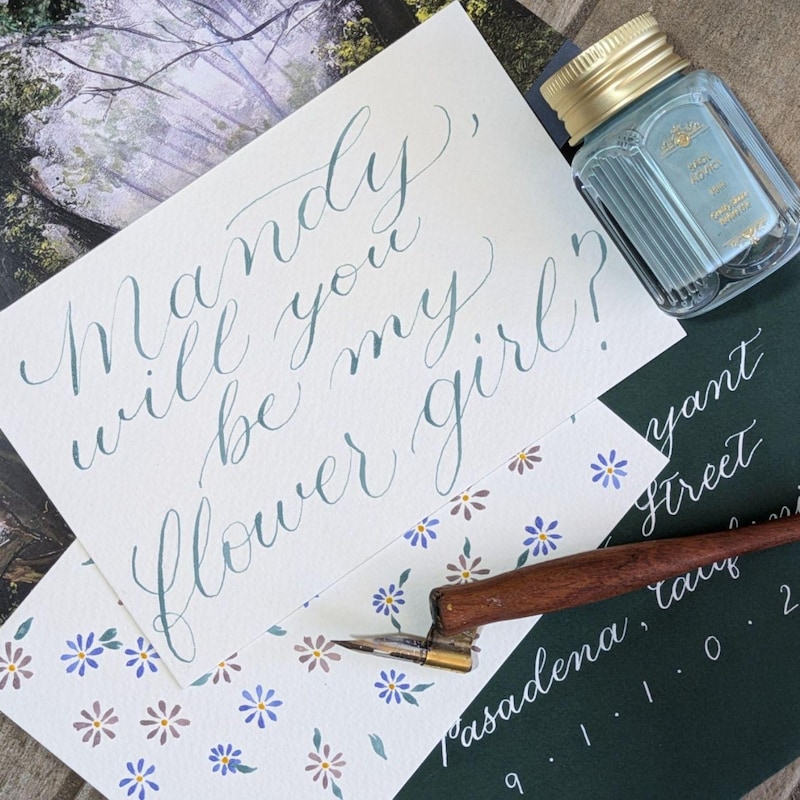 Mandy,
will you
be my
flower girl?
yant
Street
Pasadena, Calif
9·1·1·0·2